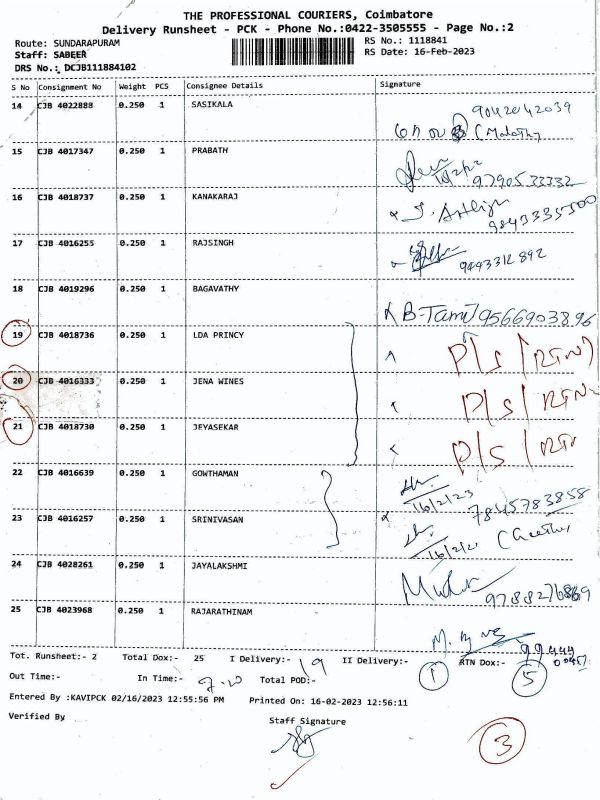 THE PROFESSIONAL COURIERS, Coimbatore
Delivery Runsheet - PCK - Phone No.:0422-3505555 - Page No.:2
Route: SUNDARAPURAM
RS No.: 1118841
Staff: SABEER
RS Date: 16-Feb-2023
DRS No.: DCJB111884102
S No Consignment No Weight PCS Consignee Details Signature
14 CJB 4022888 0.250 1 SASIKALA 9042042039
(Malathy
15 CJB 4017347 0.250 1 PRABATH
9790533332
16 CJB 4018737 0.250 1 KANAKARAJ
9843335300
17 CJB 4016255 0.250 1 RAJSINGH
9443312892
18 CJB 4019296 0.250 1 BAGAVATHY
B-Tamil 9566903896
19 CJB 4018736 0.250 1 LDA PRINCY
P/S (RTN)
20 CJB 4016333 0.250 1 JENA WINES
P/S / RTN
21 CJB 4018730 0.250 1 JEYASEKAR
P/S / RTN
22 CJB 4016639 0.250 1 GOWTHAMAN
16/2/23
7845783858
23 CJB 4016257 0.250 1 SRINIVASAN
24 CJB 4028261 0.250 1 JAYALAKSHMI
25 CJB 4023968 0.250 1 RAJARATHINAM
Tot. Runsheet:- 2 Total Dox:- 25 I Delivery:- 19 II Delivery:- 1 RTN Dox:- 5
Out Time:- In Time:- 7.20 Total POD:-
Entered By :KAVIPCK 02/16/2023 12:55:56 PM Printed On: 16-02-2023 12:56:11
Verified By Staff Signature
3